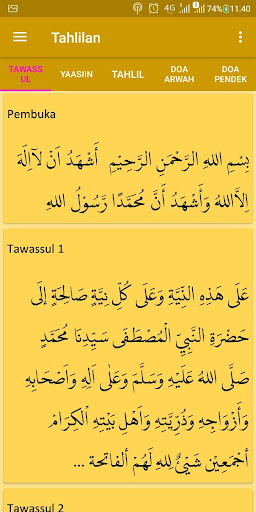 4G 74% 11.40
Tahlilan
TAWASS
UL
YAASIIN
TAHLIL
DOA
ARWAH
DOA
PENDEK
Pembuka
بِسْمِ اللهِ الرَّحْمَنِ الرَّحِيْمِ أَشْهَدُ اَنْ لآاِلَهَ
اِلاَّاللهُ وَأَشْهَدُ أَنَّ مُحَمَّدًا رَّسُوْلُ اللهِ
Tawassul 1
عَلَى هَذِهِ النِّيَّةِ وَعَلَى كُلِّ نِيَّةٍ صَالِحَةٍ إلَى
حَضْرَةِ النَّبِيِّ الْمُصْطَفَى سَيِّدِنَا مُحَمَّدٍ
صَلَّى اللهُ عَلَيْهِ وَسَلَّمَ وَعَلٰى اٰلِهِ وَاَصْحَابِهِ
وَأَزْوَاجِهِ وَذُرِّيَّتِهِ وَاَهْلِ بَيْتِهِ الْكِرَامْ
أجْمَعِيْنَ شَيْئٌ لِلهِ لَهُمْ ألفاتحة ...
Tawassul 2